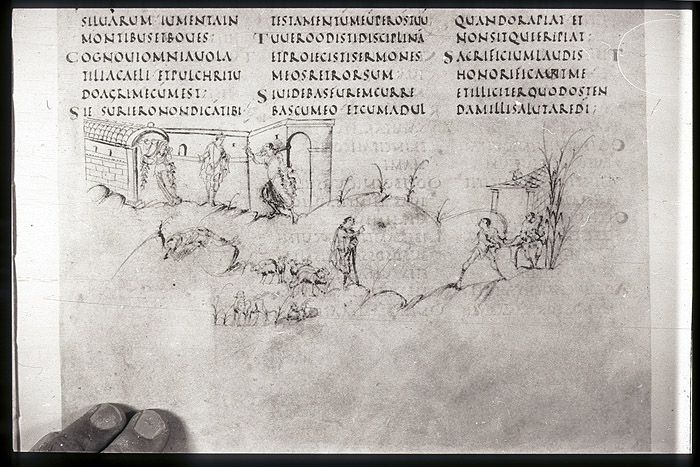 SILUARUM IUMENTA IN
MONTIBUS ET BOUES:
COGNOUI OMNIA UOLA
TILIA CAELI ET PULCHRITU
DO AGRI MECUM EST:
SI ESURIERO NON DICĀ TIBI
TESTAMENTUM EŪ PER OS TUU
TU UERO ODISTI DISCIPLINĀ
ET PROIECISTI SERMONES
MEOS RETRORSUM
SI UIDEBAS FUREM CURRE
BAS CUM EO ET CUM ADUL
QUANDO RAPIAT ET
NON SIT QUI ERIPIAT:
SACRIFICIUM LAUDIS
HONORIFICABIT ME
ET ILLIC ITER QUOD OSTEN
DAM ILLI SALUTARE DI: